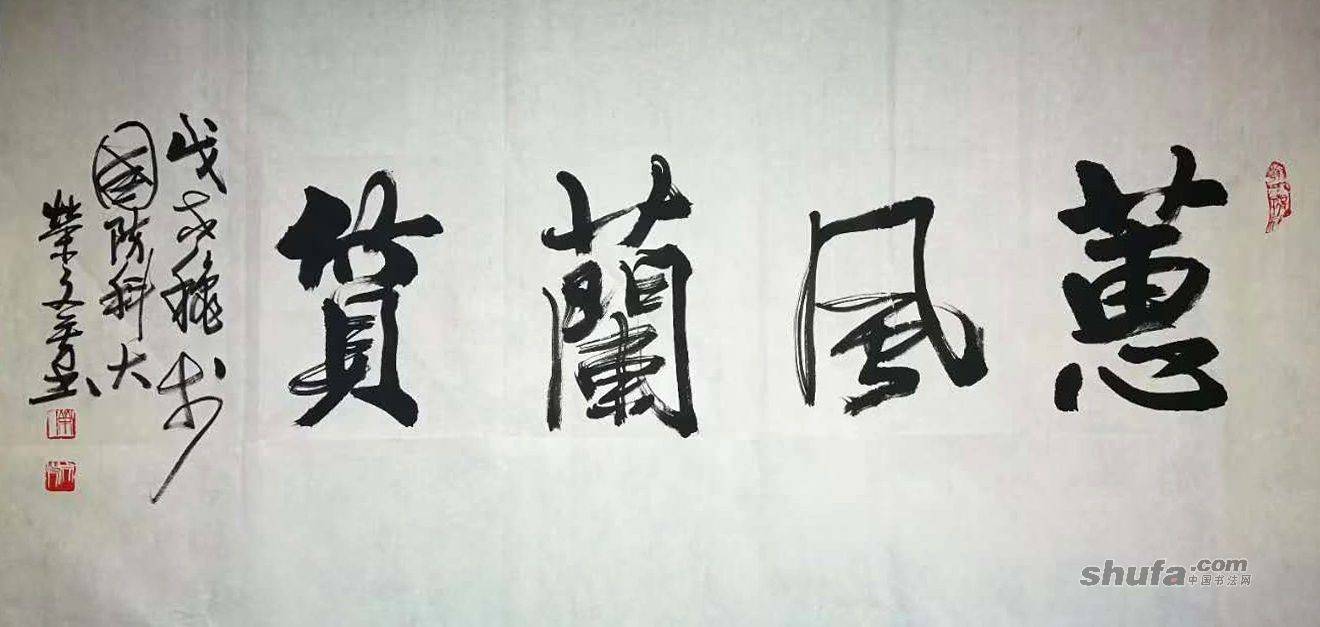 蕙風蘭質
戊戌穐於
國防科大
榮文书
shufa.com
中国书法网